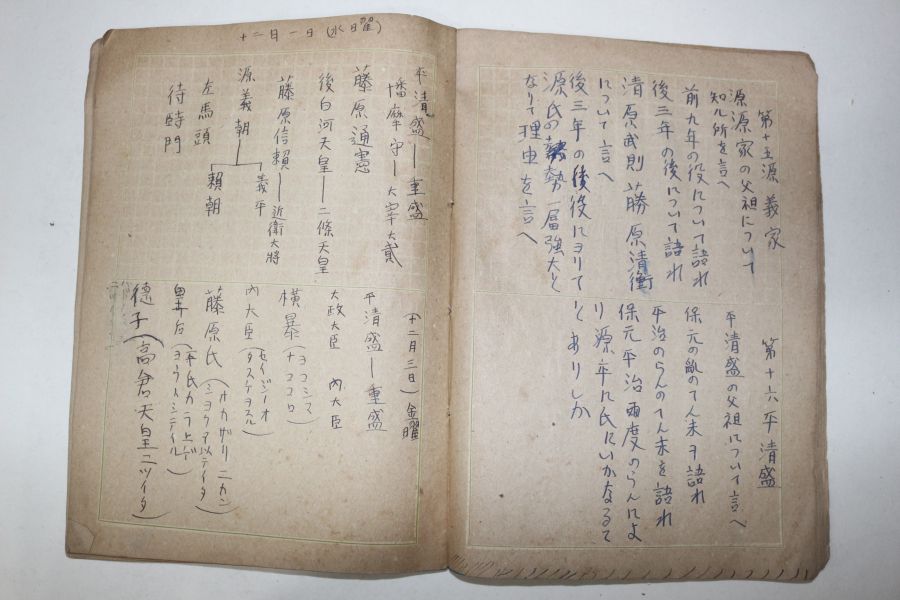 第十五源義家
源源家の父祖について
知ル所を言へ
前九年の役について語れ
後三年の後について語れ
清原武則 藤原清衡
について言へ
後三年の後後にヨリて
源氏の勢 一層強大と
なりて理由を言へ
第十六平清盛
平清盛の父祖について言へ
保元の亂のてん末ヲ語れ
平治のらんのてん末を語れ
保元平治両度のらんによ
り源平に氏にいかなるて
とありしか
十二月一日(水曜)
平清盛―重盛
播摩守―大宰大貳
藤原通憲
後白河天皇―二條天皇
藤原信頼―近衛大將
源義朝
義平
頼朝
左馬頭
待時門
十二月三日)金曜
平清盛―重盛
大政大臣 内大臣
横暴(ヨコシマ
ナココロ
内大臣(セイジーオ
タスケヲスル)
藤原氏(オカザリニカン
ショウヲ以テイタ
(平氏カラ上デ
ヨウラシテイル)
德子(高倉天皇ニツイタ)